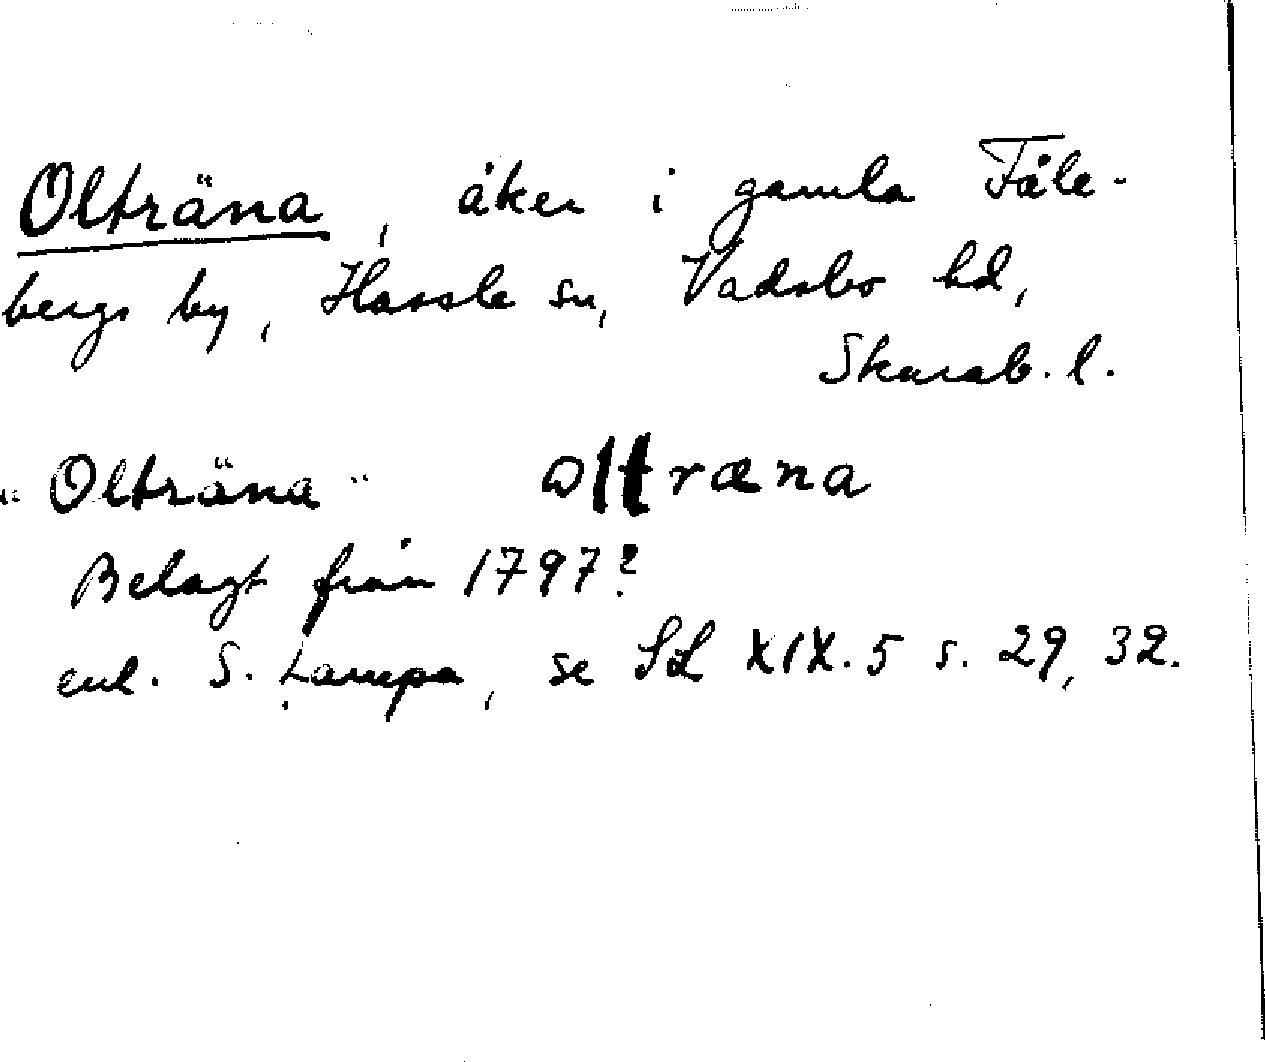 Olträna, åker i gamla Fåle-
bergs by, Hassle sn, Vadsbo hd,
Skarab. l.
"Olträna" oltræna
Belagt från 1797?
enl. S. Lampa, se SL XIX. 5 s. 29, 32.